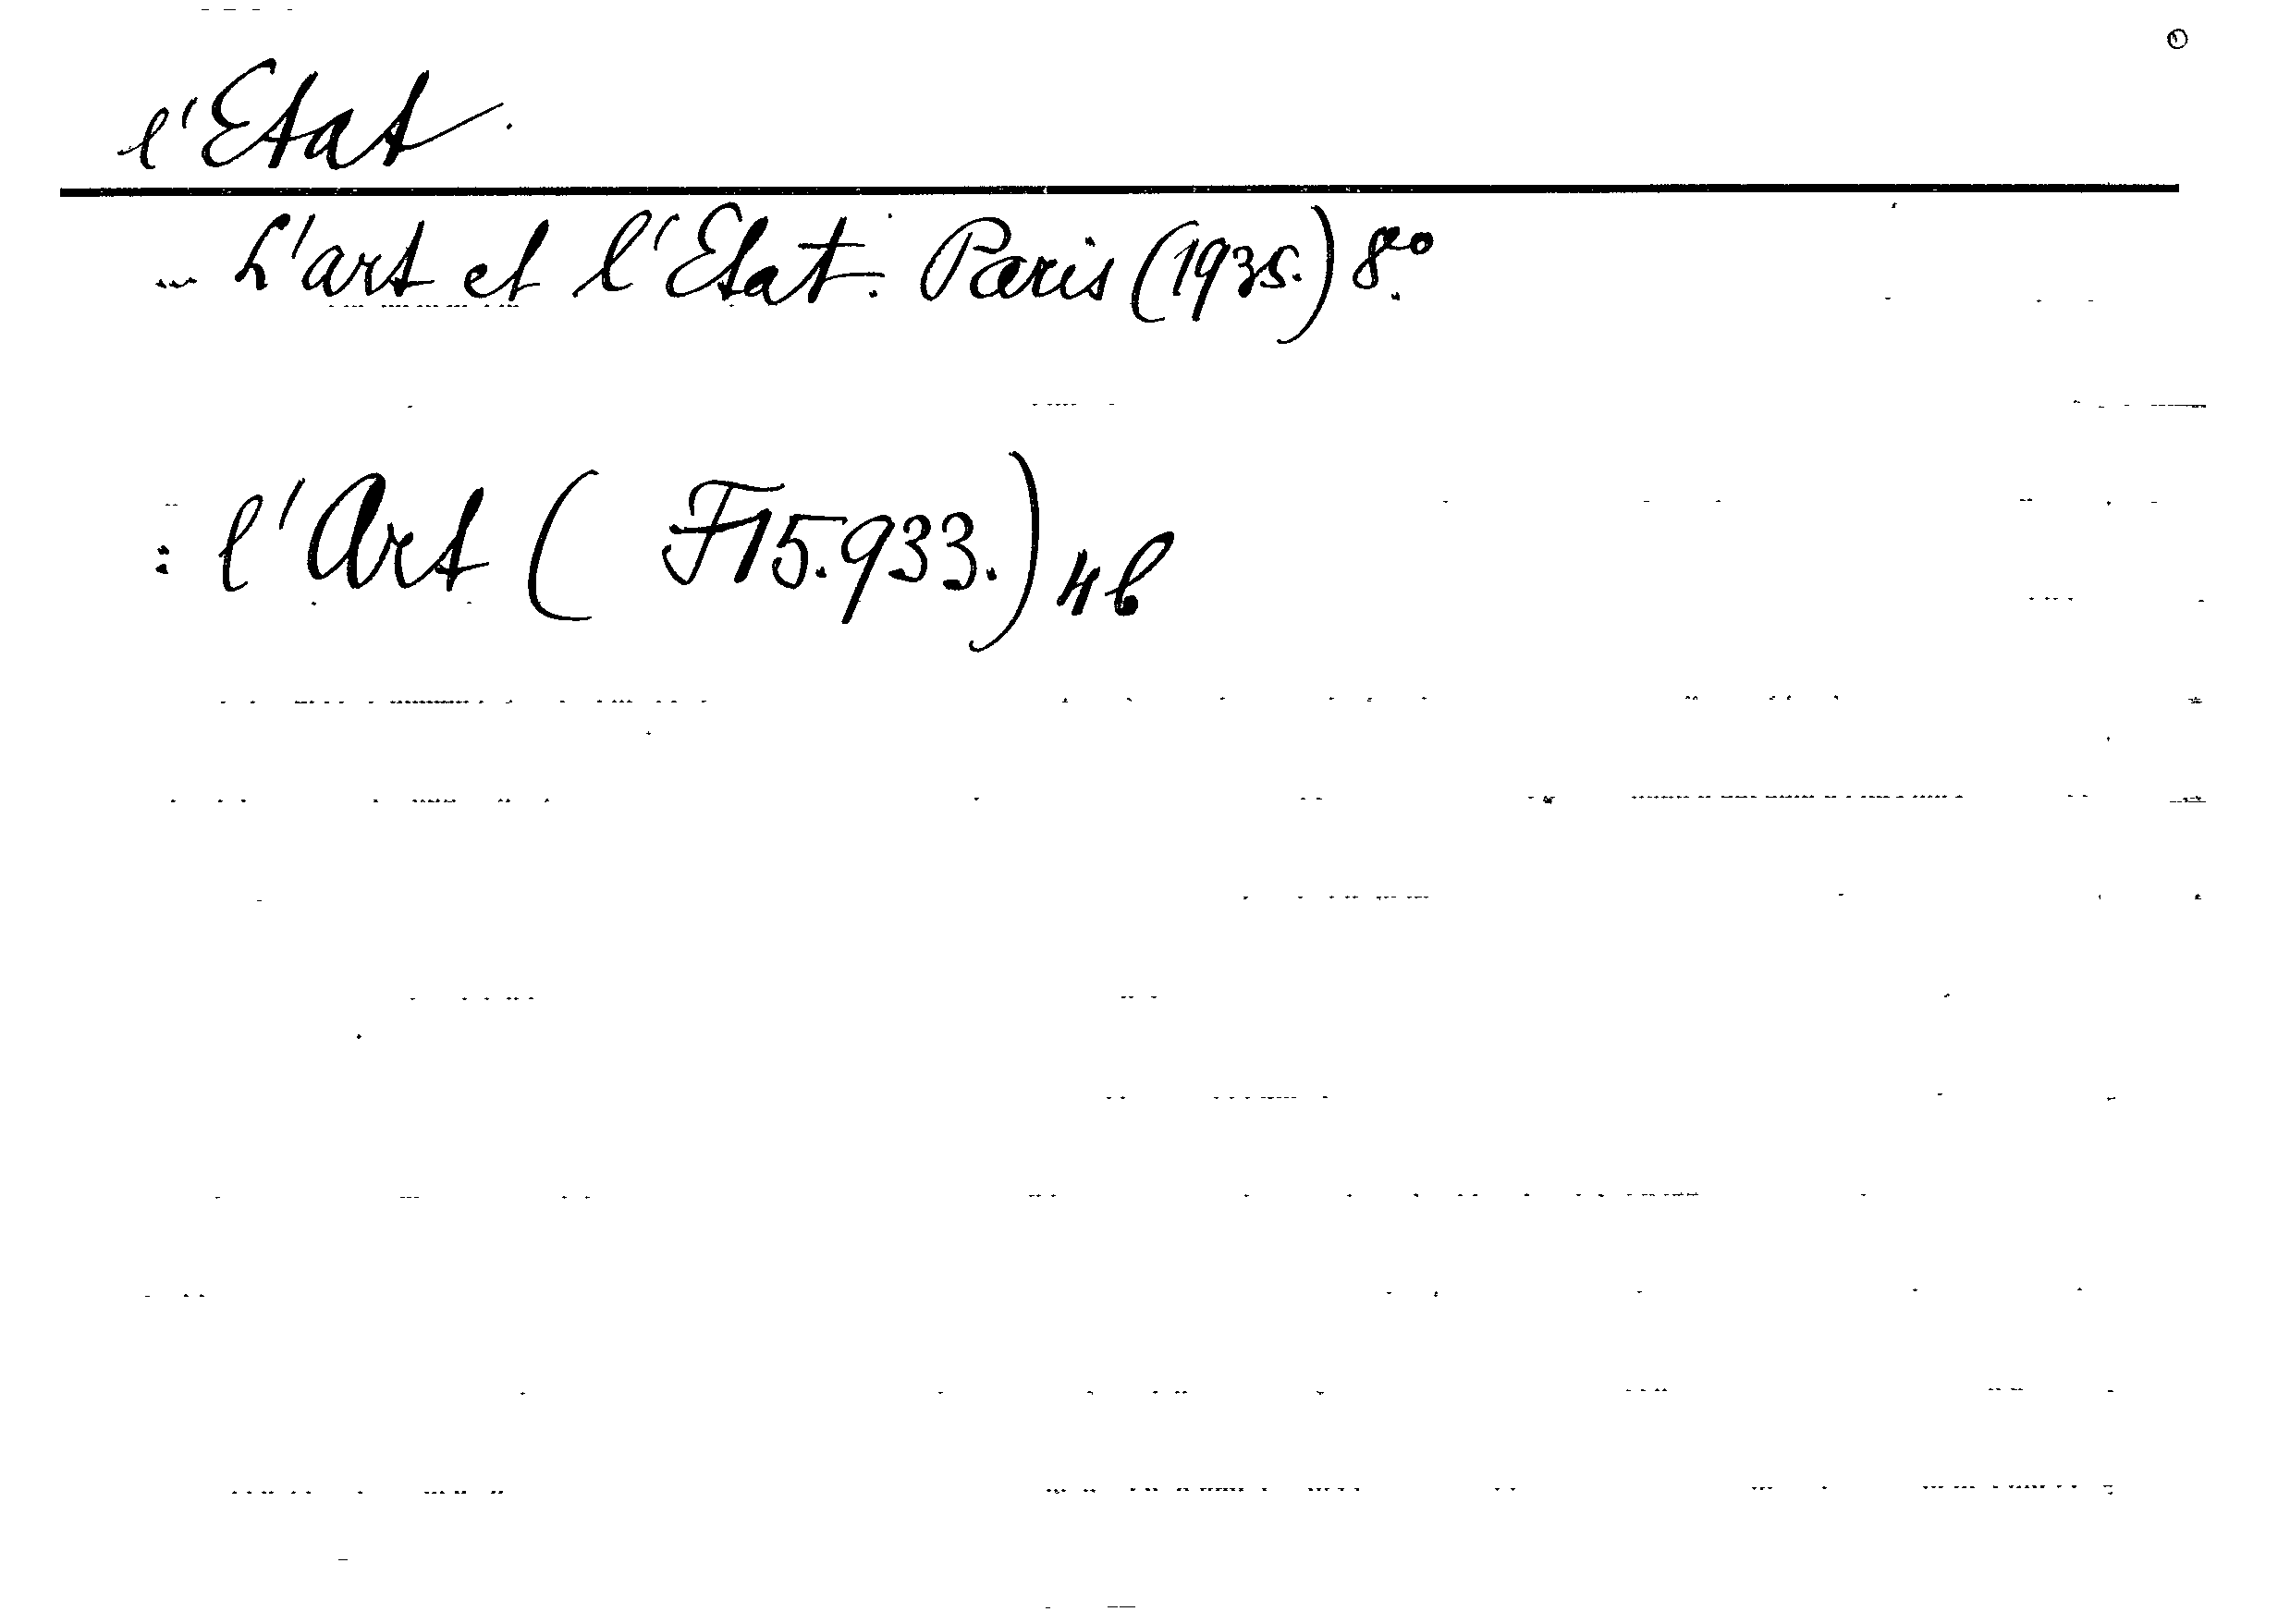 l'Etat.
- L'art et l'Etat. Paris (1935.) 8vo.
: l'Art ( F15.933.) 4b